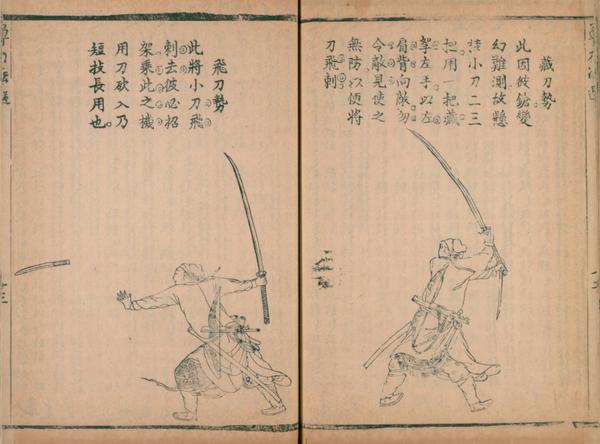 藏刀勢
此因彼鎗變
幻難測故懸
挂小刀二三
把用一把藏
挐左手以左
肩背向敵勿
令敵見使之
無防以便將
刀飛刺
飛刀勢
此將小刀飛
刺去彼必招
架乘此之機
用刀砍入乃
短技長用也